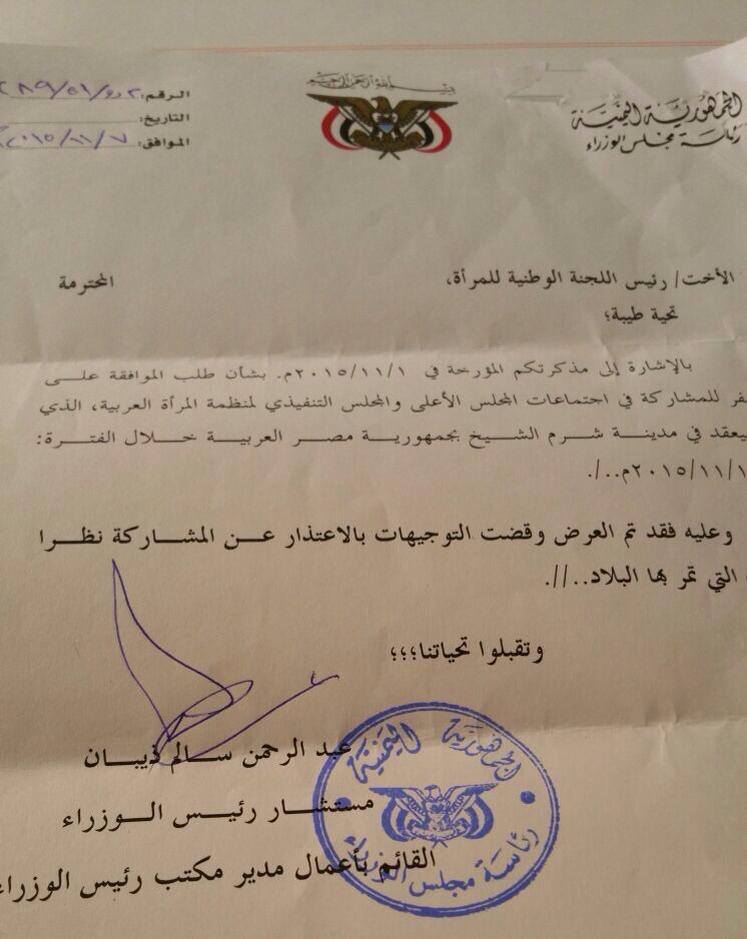 الجمهورية اليمنية
رئاسة مجلس الوزراء
بسم الله الرحمن الرحيم
الرقم:
التاريخ:
الموافق: ٢٠١٥/١١/٧
الأخت/ رئيس اللجنة الوطنية للمرأة، المحترمة
تحية طيبة؛
بالإشارة إلى مذكرتكم المؤرخة في ٢٠١٥/١١/١م. بشأن طلب الموافقة على
للمشاركة في اجتماعات المجلس الأعلى والمجلس التنفيذي لمنظمة المرأة العربية، الذي
في مدينة شرم الشيخ بجمهورية مصر العربية خلال الفترة:
٢٠١٥/١١/١م../.
وعليه فقد تم العرض وقضت التوجيهات بالاعتذار عن المشاركة نظرا
التي تمر بها البلاد..//.
وتقبلوا تحياتنا؛؛؛
عبد الرحمن سالم ذيبان
مستشار رئيس الوزراء
القائم بأعمال مدير مكتب رئيس الوزراء
الجمهورية اليمنية
رئاسة مجلس الوزراء